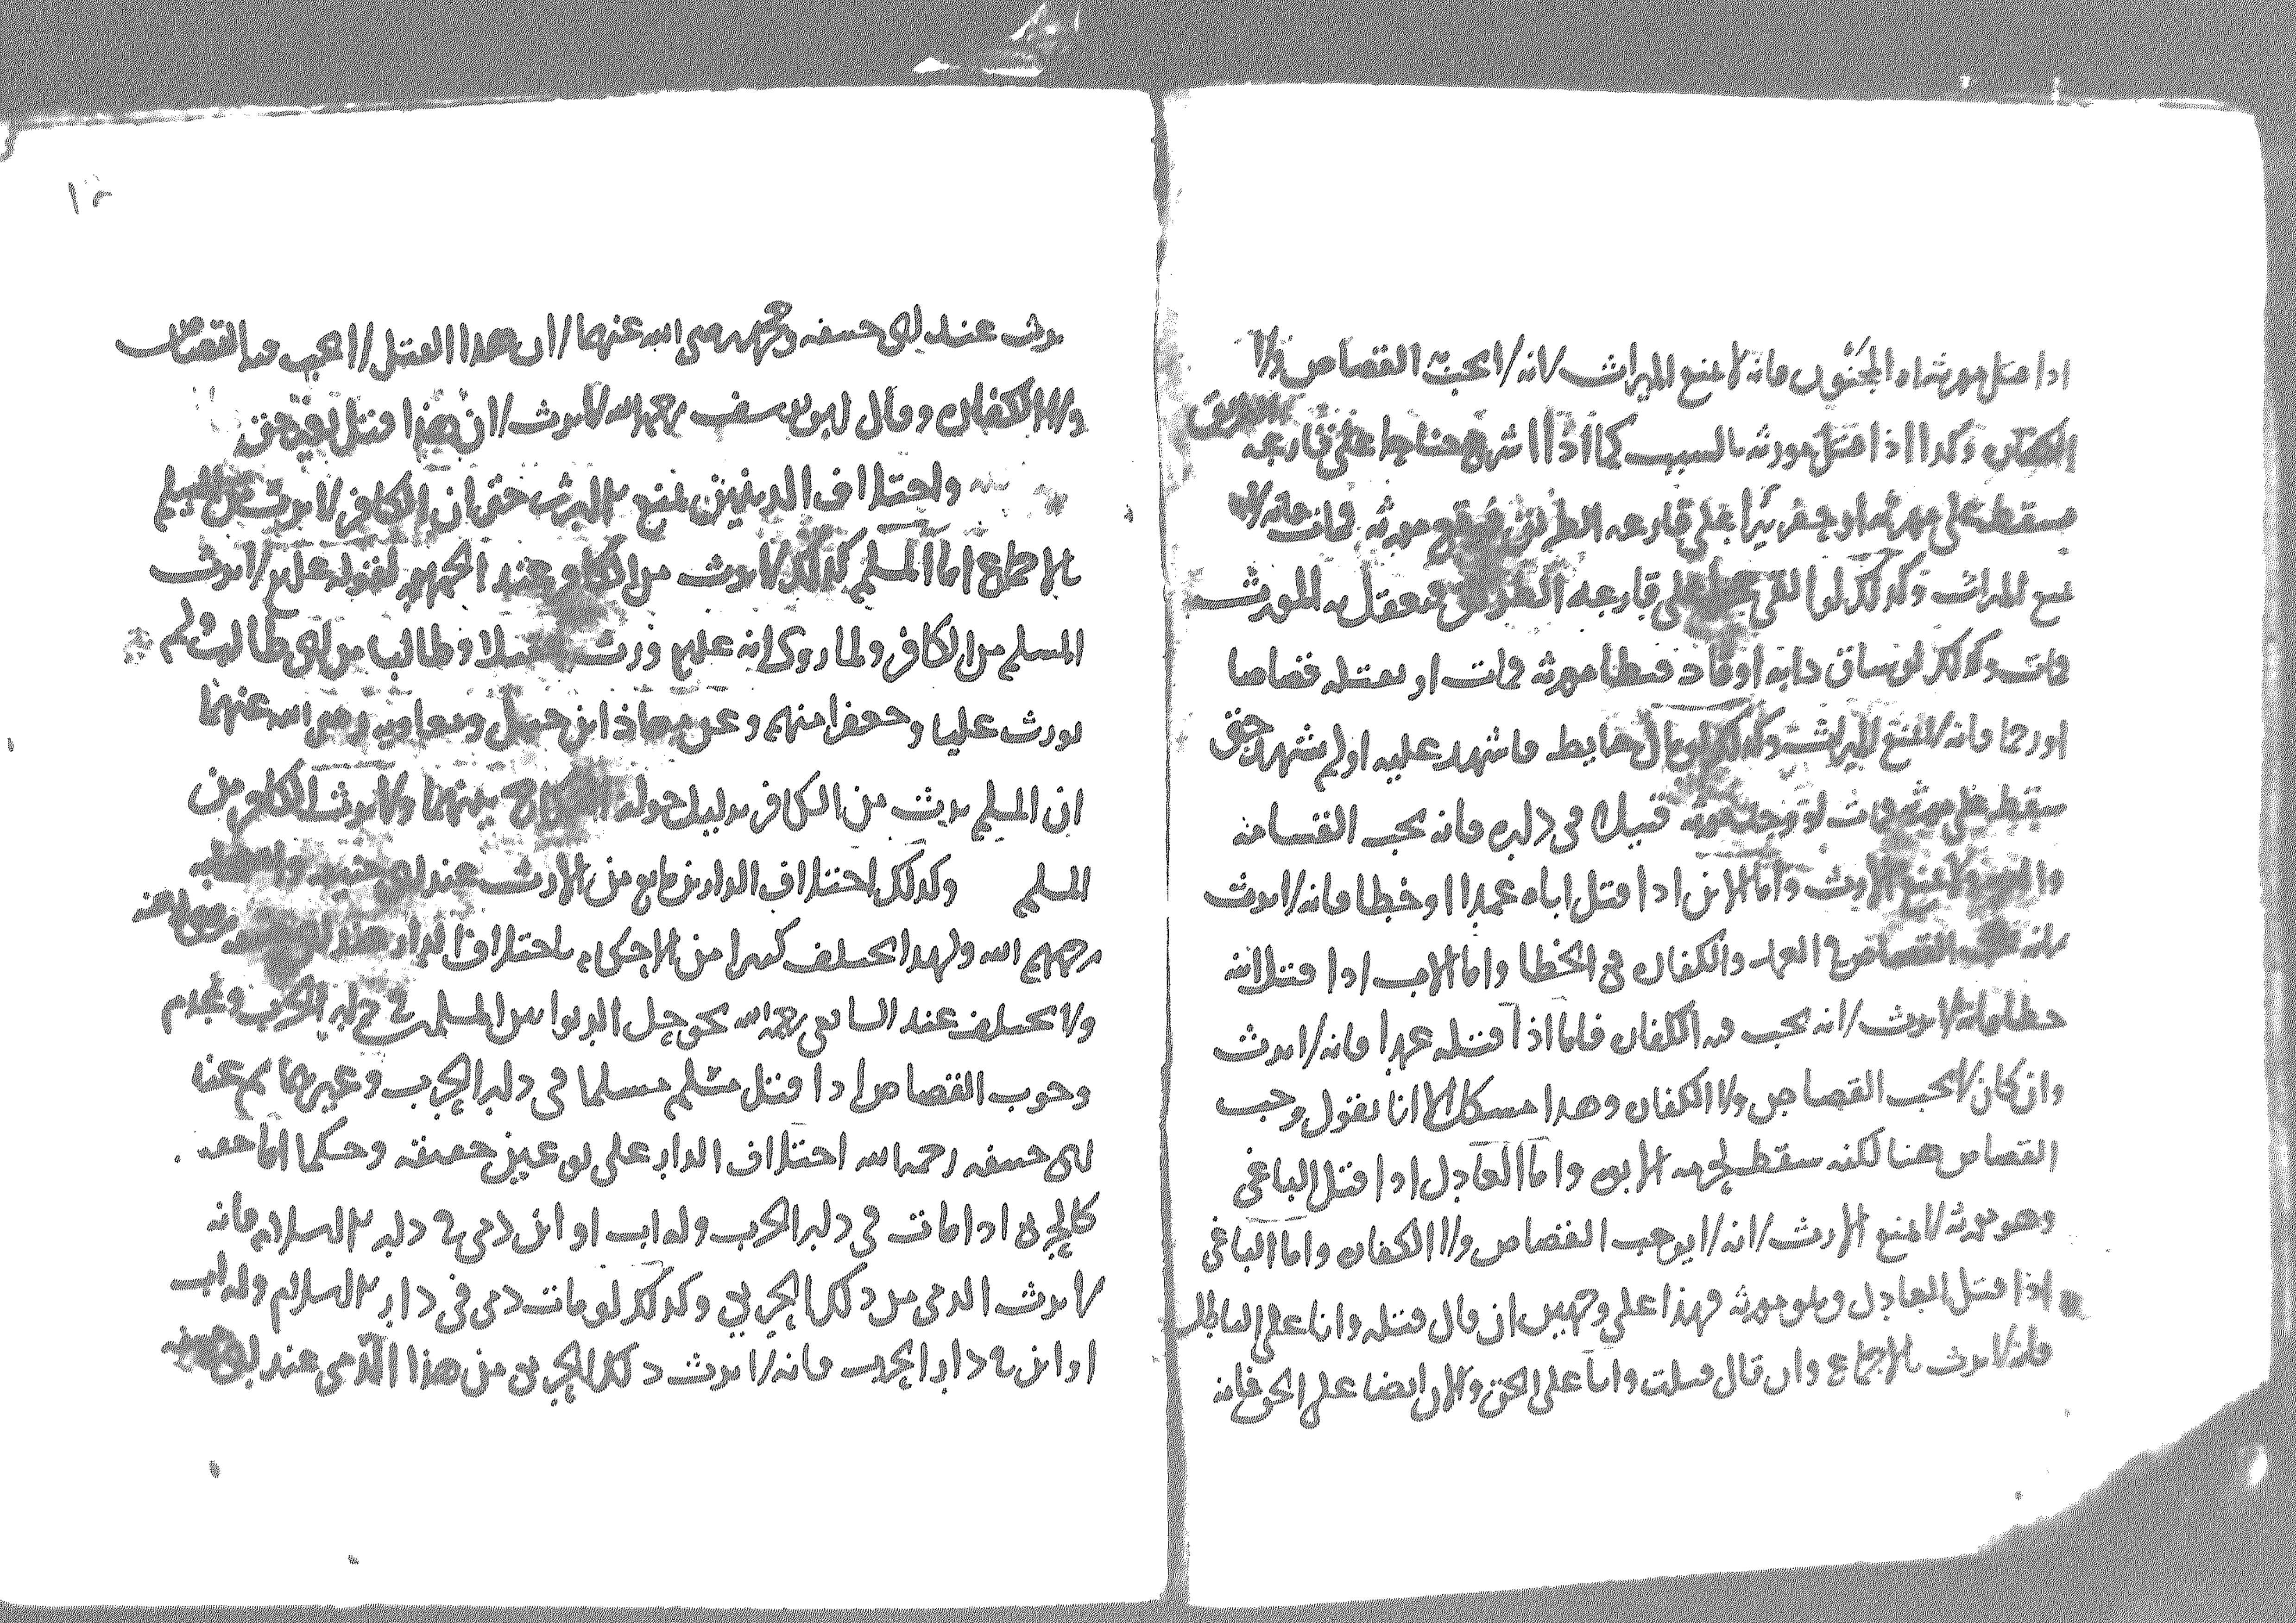 اذا قتل مورثه او المجنون فانه لا يمنع الميراث لانه لا يجب القصاص ولا
الكفارة وكذا اذا قتل مورثه بالسبب كما اذا اشرع جناحا على قارعه الطريق
فسقط على مورثه او حفر بيرا على قارعه الطريق فوقع مورثه فمات فانه لا
يمنع الميراث وكذلك لو القى على قارعه الطريق فتعقل به المورث
فمات وكذلك لو ساق دابه او قاد فوطا مورثه فمات او يقتله قصاصا
او رجما فانه لا يمنع الميراث وكذلك لو مال حايط فاشهد عليه او لم يشهد حتى
سقط على مورثه فمات لو وجد مورثه قتيلا في داره فانه يجب القسامه
ولا يمنع الارث واما الابن اذا قتل اباه عمدا او خطا فانه لا يرث
لانه يجب القصاص في العمد والكفاره في الخطا واما الاب اذا قتل ابنه
خطا فانه لا يرث لانه يجب فيه الكفاره فاما اذا قتله عمدا فانه لا يرث
وان كان لا يجب القصاص ولا الكفاره وهذا مشكل الا انا نقول وجب
القصاص هنا لكنه سقط لحرمه الابوه واما العادل اذا قتل الباغي
وهو مورثه لا يمنع الارث لانه لا يوجب القصاص ولا الكفاره واما الباغي
اذا قتل العادل وهو مورثه فهذا على وجهين ان قال قتله وانا على الباطل
فانه لا يرث بالاجماع وان قال قتلت وانا على الحق والان ايضا على الحق فانه
١٢
يرث عند ابي حنيفه ومحمد رضي الله عنهما لان هذا القتل لا يجب فيه القصاص
ولا الكفاره وقال ابو يوسف رحمه الله لا يرث لان هذا قتل بغير حق
واختلاف الدينين يمنع الارث حتى ان الكافر لا يرث من المسلم
بالاجماع اما المسلم كذلك لا يرث من الكافر عند الجمهور لقوله عليم لا يرث
المسلم من الكافر ولما روى انه عليم ورث عقيلا وطالبا من ابي طالب ولم
يورث عليا وجعفرا منهم وعن معاذ ابن جبل ومعاويه رضى الله عنهما
ان المسلم يرث من الكافر بدليل جواز النكاح بينهما ولا يرث الكافر من
المسلم وكذلك اختلاف الدارين مانع من الارث عند ابي حنيفه واصحابه
رحمهم الله ولهذا يختلف كثيرا من الاحكام باختلاف الدار عند ابي حنيفه رضي الله عنه
ولا يختلف عند الشافعى رحمه الله نحو حل الربوا بين المسلمين في دار الحرب وعدم
وجوب القصاص اذا قتل مسلم مسلما في دار الحرب وغيرهما ثم عند
ابي حنيفه رحمه الله اختلاف الدار على نوعين حقيقه وحكما اما حقيقه
كالحربى اذا مات في دار الحرب وله اب او ابن ذمى في دار الاسلام فانه
لا يرث الذمى من ذلك الحربي وكذلك لو مات ذمى في دار الاسلام وله اب
او ابن في دار الحرب فانه لا يرث ذلك الحربى من هذا الذمى عند ابي حنيفه